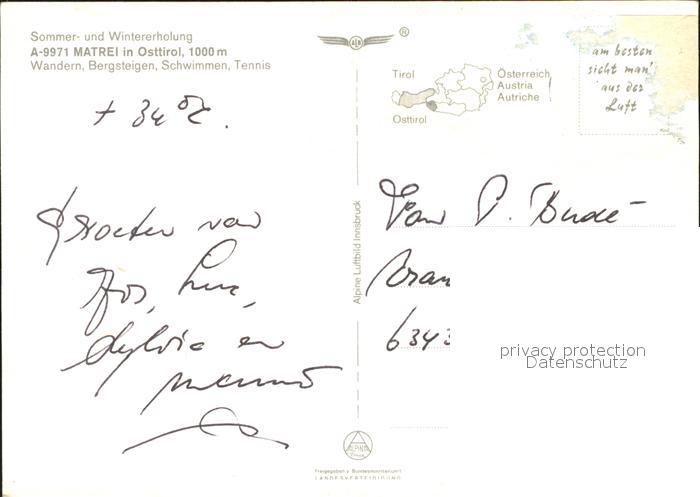 Sommer- und Wintererholung
A-9971 MATREI in Osttirol, 1000 m
Wandern, Bergsteigen, Schwimmen, Tennis
+ 34 °C.
Groeten van
Jos,
Sylvia en
®
Tirol
Osttirol
Österreich
Austria
Autriche
am besten
sieht man's
aus der
Luft
Alpine Luftbild Innsbruck
Fam P. Budé
6343
privacy protection
Datenschutz
ALPINE
Freigegeben v. Bundesministerium f.
LANDESVERTEIDIGUNG